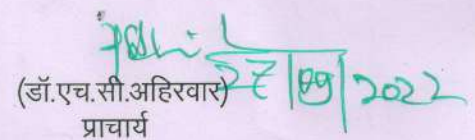 27/09/2022
(डॉ.एच.सी.अहिरवार)
प्राचार्य